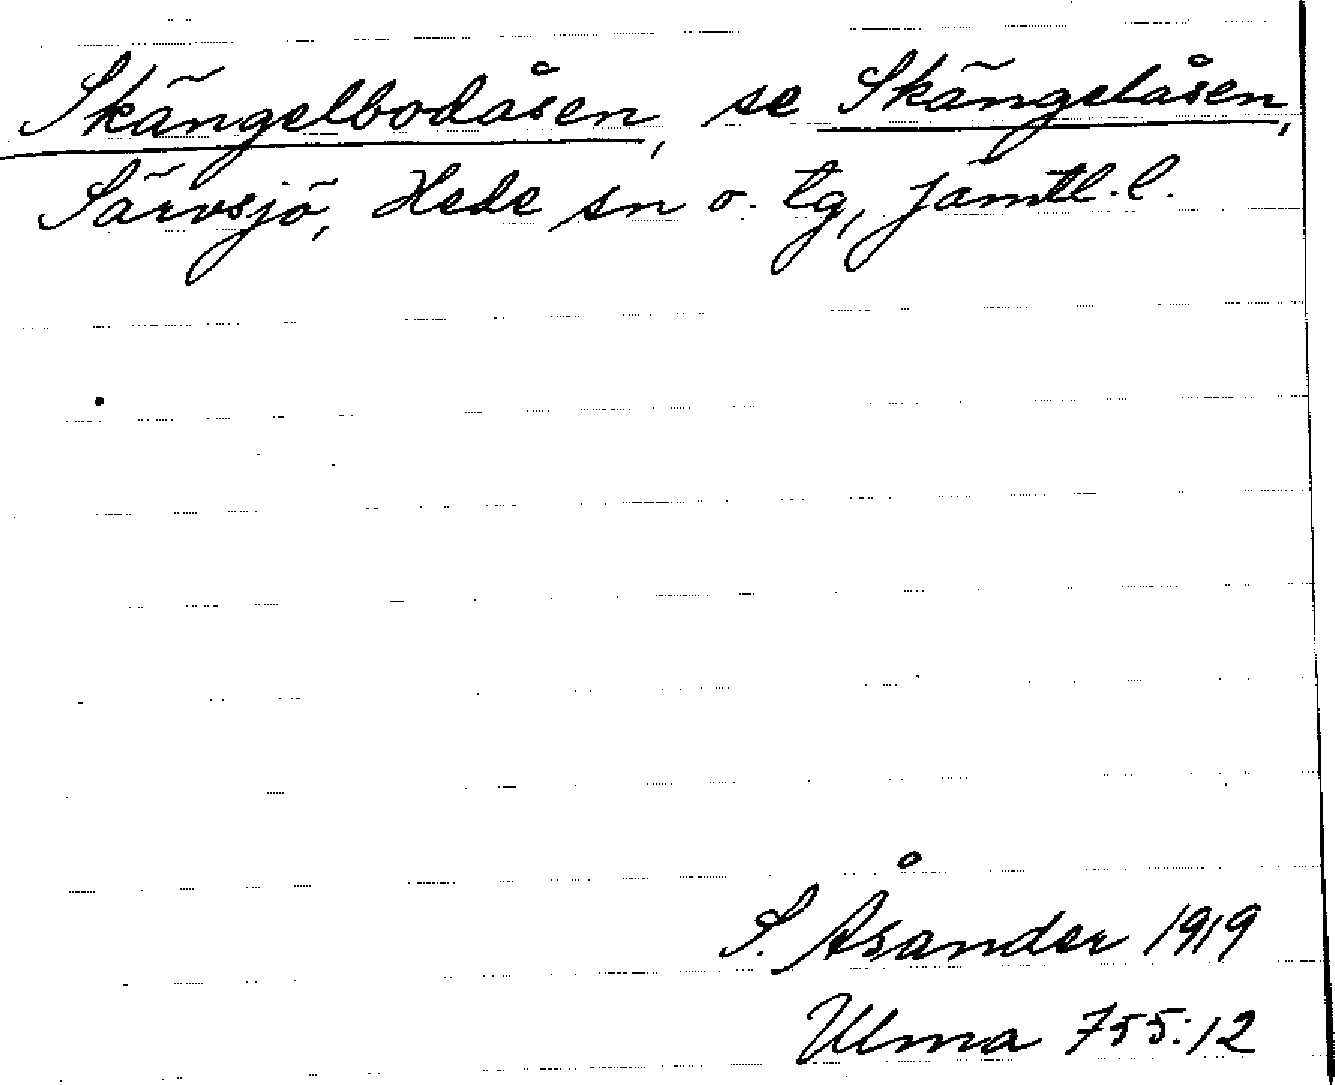 Skängelbodåsen, se Skängelåsen,
Särvsjö, Hede sn o. tg, Jämtl. l.
S. Åsander 1919
Ulma 755:12